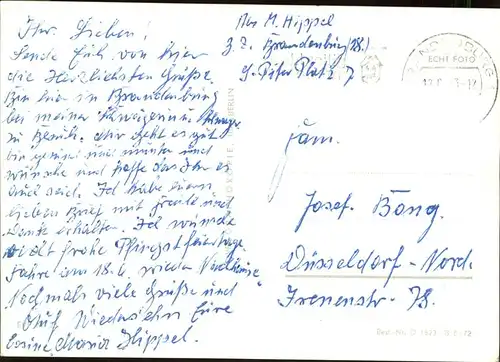 Ihr Lieben!
Sende Euch von hier
die Herzlichsten Grüße.
Bin hier in Brandenburg
bei meiner Schwägerin
zu Besuch. Mir geht es gut
bin gesund und munter und
wünsche und hoffe das Ihr es
auch seid. Ich habe Euern
lieben Brief mit Freude und
Dank erhalten. Ich wünsche
Euch frohe Pfingstfeiertage.
Fahre am 18.6. wieder Nach Hause.
Nochmals viele Grüße und
Auf Wiedersehn Eure
Maria Hippel.
Abs M. Hippel
z. Z. Brandenburg (H.)
Platz 7
ECHT FOTO
BERLIN
Fam.
Josef Böng.
Düsseldorf-Nord.
Irenenstr. 78.